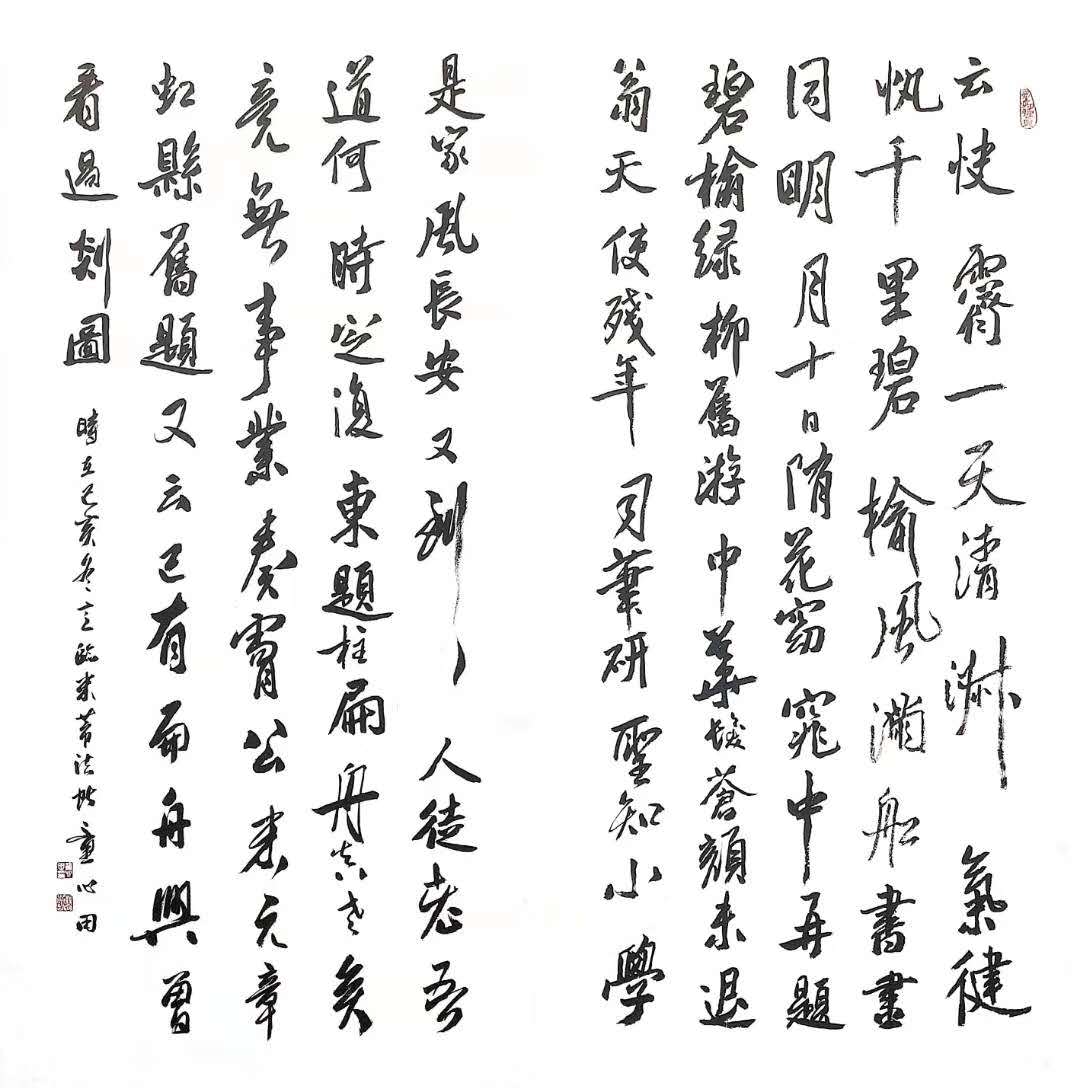 云快霽一天清淑氣健
帆千里碧榆風滿船書畫
同明月十日隋花窈窕中再題
碧榆绿柳舊游中華髮蒼顏未退
翁天使殘年司筆研聖知小學
是家風長安又到人徒老吾
道何時定復東題柱扁舟真老矣
竟無事業奏膚公米元章
虹縣舊題又云已有扁舟興曾
看過剡圖
時在己亥冬立臨米芾法帖童心田